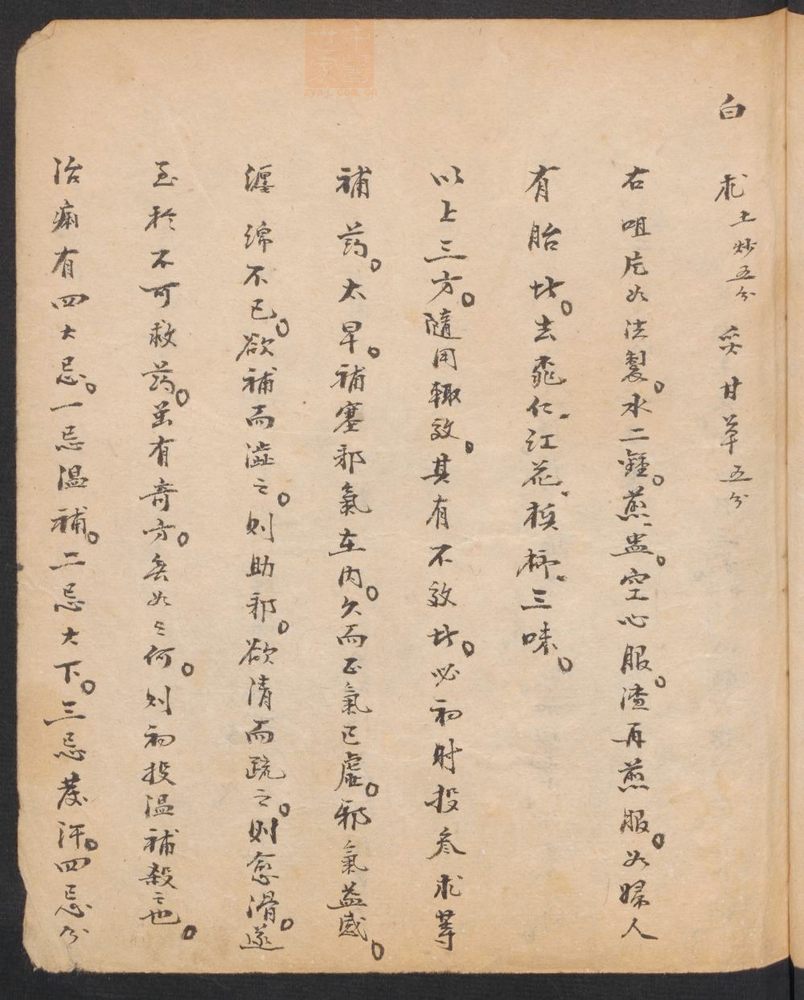 白术土炒五分 炙甘草五分
右咀片如法製。水二鍾。煎盅。空心服。渣再煎服。如婦人
有胎者。去桃仁。红花。槟榔。三味。
以上三方。隨用輙效。其有不效者。必初时投参术等
補药。太早。補塞邪氣在内。久而正氣已虛。邪氣益盛。
纏綿不已。欲補而澁之。则助邪。欲清而疏之。则愈滑。遂
至於不可救药。虽有奇方。無如之何。则初投温補殺之也。
治痢有四大忌。一忌温補。二忌大下。三忌發汗。四忌分